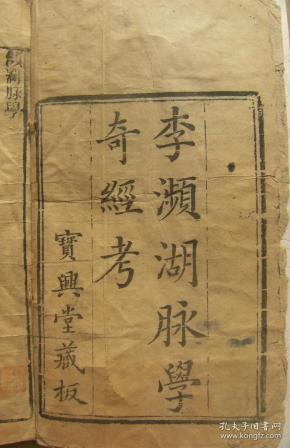 李瀕湖脉學
奇經考
寶興堂藏板
瀕湖脉學
孔夫子旧书网